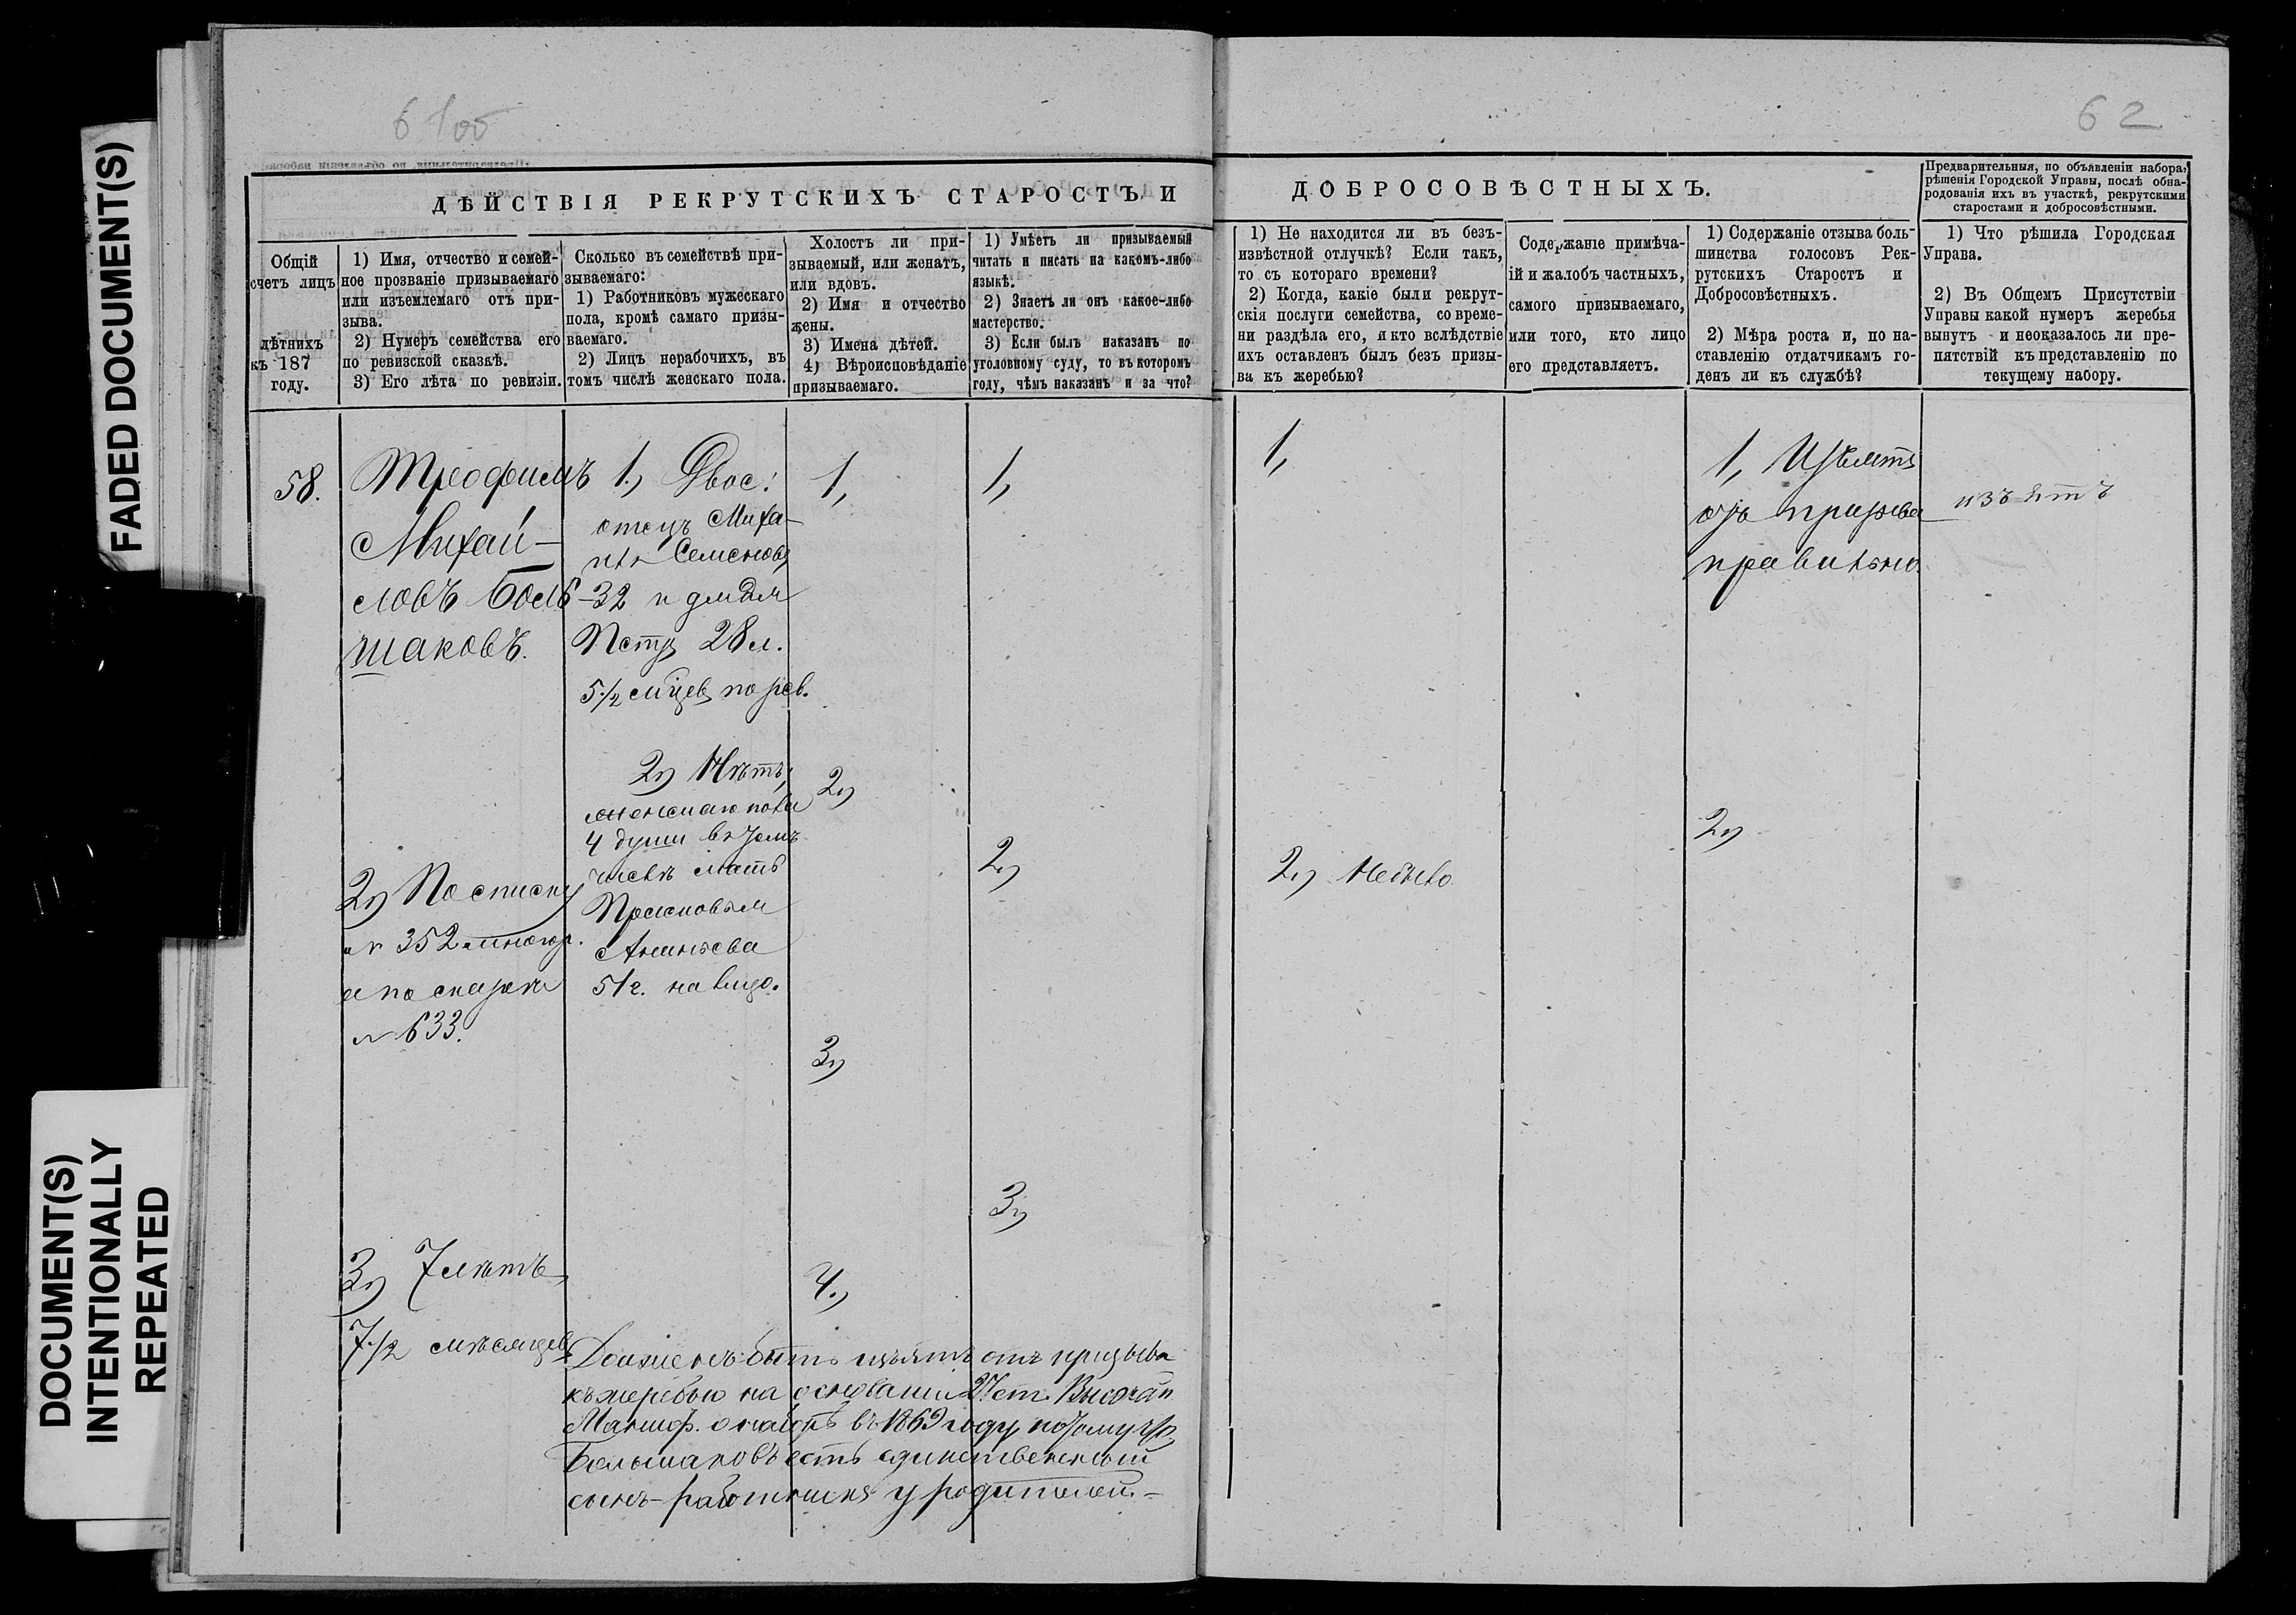 FADED DOCUMENT(S)
DOCUMENT(S)
INTENTIONALLY
REPEATED
62
ДѢЙСТВІЯ РЕКРУТСКИХЪ СТАРОСТЪ И
ДОБРОСОВѢСТНЫХЪ.
Предварительныя, по объявленіи набора,
рѣшенія Городской Управы, послѣ обна-
родованія ихъ въ участкѣ, рекрутскими
старостами и добросовѣстными.
Общій
счетъ лицъ
лѣтнихъ
къ 187
году.
1) Имя, отчество и семей-
ное прозваніе призываемаго
или изъемлемаго отъ при-
зыва.
2) Нумеръ семейства его
по ревизской сказкѣ.
3) Его лѣта по ревизіи.
Сколько въ семействѣ при-
зываемаго:
1) Работниковъ мужескаго
пола, кромѣ самаго призы-
ваемаго.
2) Лицъ нерабочихъ, въ
томъ числѣ женскаго пола.
Холостъ ли при-
зываемый, или женатъ,
или вдовъ.
2) Имя и отчество
жены.
3) Имена дѣтей.
4) Вѣроисповѣданіе
призываемаго.
1) Умѣетъ ли призываемый
читать и писать на какомъ-либо
языкѣ.
2) Знаетъ ли онъ какое-либо
мастерство.
3) Если былъ наказанъ по
уголовному суду, то въ которомъ
году, чѣмъ наказанъ и за что?
1) Не находится ли въ безъ-
извѣстной отлучкѣ? Если такъ,
то съ котораго времени?
2) Когда, какіе были рекрут-
скія послуги семейства, со време-
ни раздѣла его, и кто вслѣдствіе
ихъ оставленъ былъ безъ призы-
ва къ жеребью?
Содержаніе примѣча-
ій и жалобъ частныхъ,
самого призываемаго,
или того, кто лицо
его представляетъ.
1) Содержаніе отзыва боль-
шинства голосовъ Рек-
рутскихъ Старостъ и
Добросовѣстныхъ.
2) Мѣра роста и, по на-
ставленію отдатчикамъ го-
денъ ли къ службѣ?
1) Что рѣшила Городская
Управа.
2) Въ Общемъ Присутствіи
Управы какой нумеръ жеребья
вынутъ и неоказалось ли пре-
пятствій къ представленію по
текущему набору.
58.
Трофимъ
Михай-
ловъ Боль-
шаковъ.
2, По списку
№ 352
а по сказкѣ
№ 633.
3, 7 лѣтъ
7 1/2 мѣсяцев
1, Двос:
отецъ Миха-
илъ Семеновъ
32 и
Петръ 28 л.
5 1/2 мѣцев по рев.
2, Нѣтъ,
женскаго пола
4 души въ томъ
числѣ мать
Прасковья
Ананьева
51 г. на лицо.
1,
2,
3,
4,
1,
2,
3,
Долженъ быть изъятъ отъ призыва
къ жеребью на основаніи ст. Высочайш
Маниф. о наборѣ въ 1869 году, потому что
Большаковъ есть единственный
сынъ-работникъ у родителей-
1,
2, Небыло
1, Изъятъ
отъ призыва
правильно
2,
изъятъ